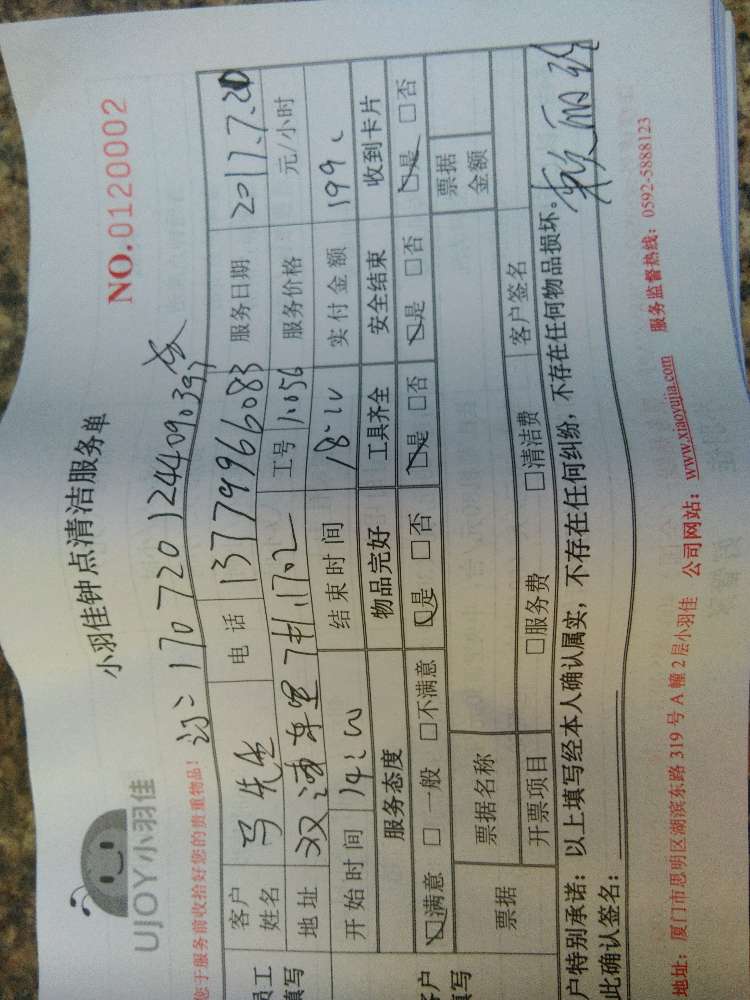 UJOY小羽佳
小羽佳钟点清洁服务单
NO.0120002
您于服务前收拾好您的贵重物品!
170720124409039
客户姓名 马先生 电话 13779966083 服务日期 2017.7.20
地址 双浦东里 工号 11056 服务价格 元/小时
开始时间 结束时间 实付金额 199
服务态度 物品完好 工具齐全 安全结束 收到卡片
☑满意 □一般 □不满意 ☑是 □否 ☑是 □否 ☑是 □否 ☑是 □否
票据 票据名称 票据金额
开票项目 □服务费 □清洁费 客户签名
户特别承诺:以上填写经本人确认属实,不存在任何纠纷,不存在任何物品损坏。
此确认签名:
地址:厦门市思明区湖滨东路319号A幢2层小羽佳 公司网站:www.xiaoyujia.com 服务监督热线:0592-5888123